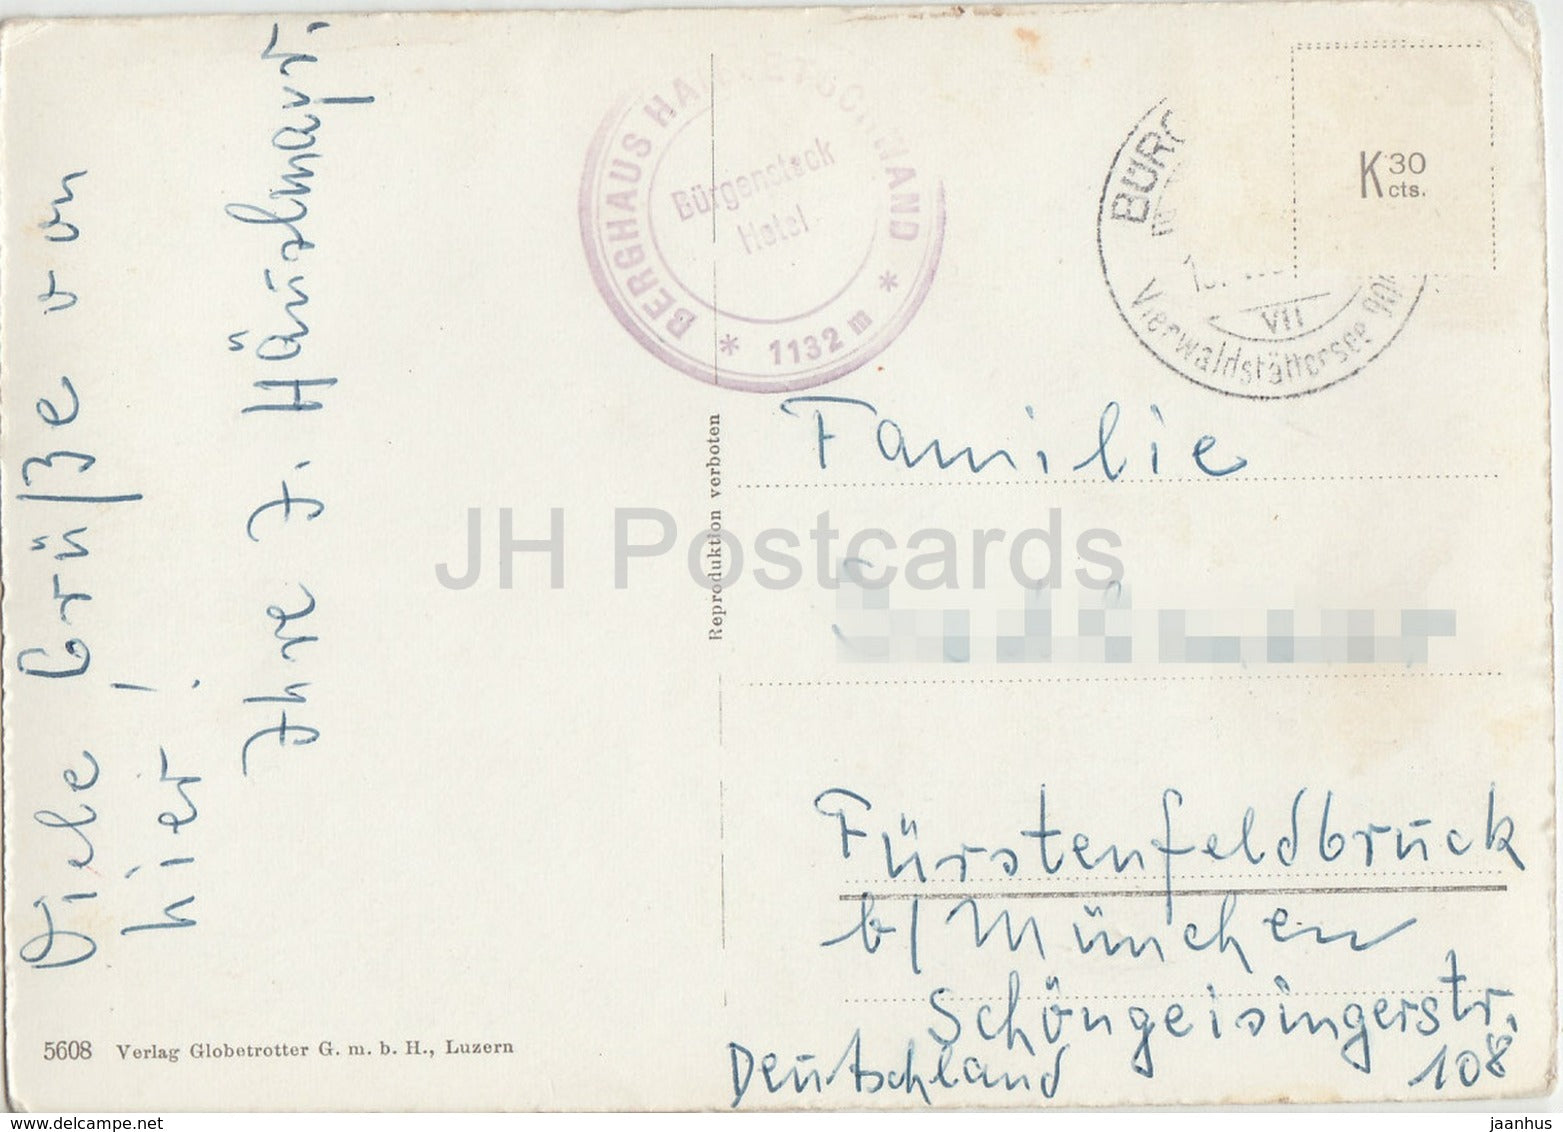 Viele Grüße von
hier!
Ihre J. Häuslmayr.
BERGHAUS HAMMETSCHWAND
Bürgenstock
Hotel
* 1132 m *
BÜRG
VII
Vierwaldstättersee
K 30
cts.
Reproduktion verboten
Familie
Fürstenfeldbruck
b/München
Schöngeisingerstr.
108
Deutschland
5608 Verlag Globetrotter G. m. b. H., Luzern
JH Postcards
www.delcampe.net
jaanhus